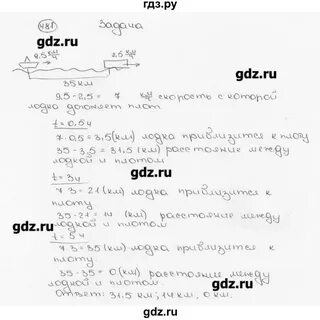 гдз.ру
481 Задача
gdz.ru gdz.ru
9,5 км/ч 2,5 км/ч
35 км
9,5-2,5= 7 км/ч скорость с которой
лодка догоняет плот.
t=0,5ч
7·0,5=3,5(км) лодка приблизится к плоту
35-3,5=31,5(км) расстояние между
лодкой и плотом
gdz.ru gdz.ru
t=3ч
7·3=21(км) лодка приблизится к
плоту.
35-21=14 (км) расстояние между
лодкой и плотом
t=5ч
7·5=35(км) лодка приблизится к
плоту.
35-35=0(км) расстояние между
лодкой и плотом.
Ответ: 31,5 км; 14 км, 0 км.
gdz.ru gdz.ru